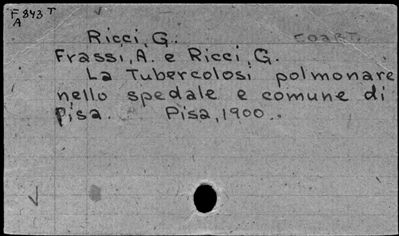 F 843 T
A
Ricci, G. COART.
Frassi, A. e Ricci, G.
La Tubercolosi polmonare
nello spedale e comune di
Pisa. Pisa, 1900.